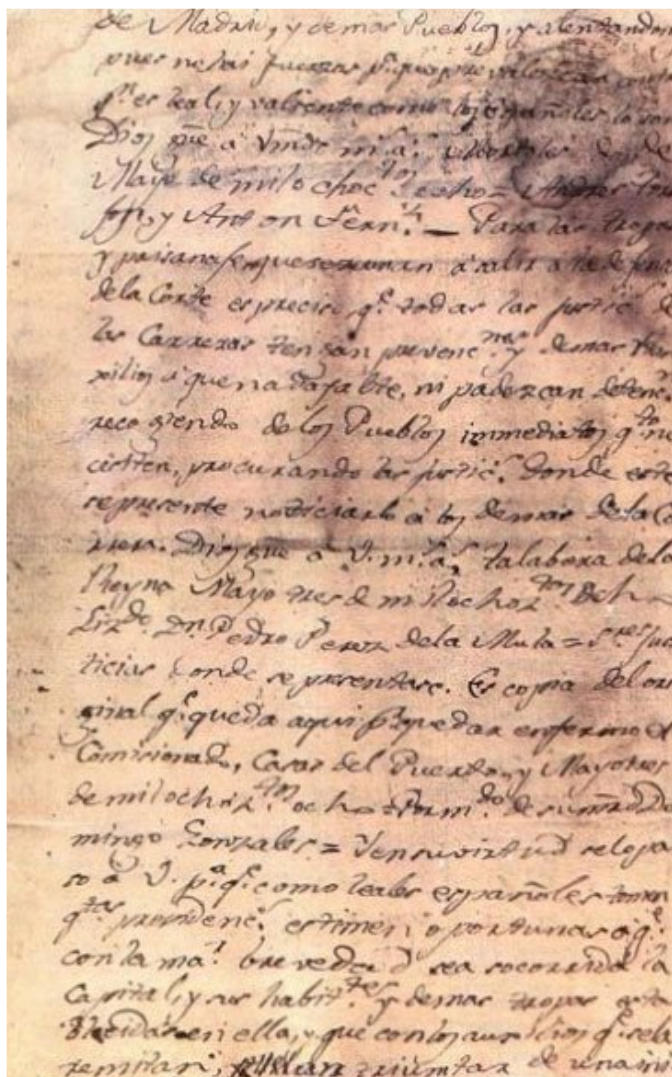 de Madrid, y demas Pueblos, y alentandon
pues no hai fuerzas pª. que prevalezcan
qⁿ. es leal, y valiente como los españoles lo son
Dios gūe à Vmds. mˢ. aˢ. Mostoles dos de
Mayo de mil ochocᵗᵒˢ. ocho = Andres Tor
jon, y Anton Fernᶻ. — Para las tropas
y paisanage que se reunan à salir à la defensa
de la Corte es preciso qᵉ. todas las justic
las Carreras tengan prevencⁿᵉˢ. y demas
xilios à que nada falte, ni padezcan detenc
recogiendo de los Pueblos immediatos qᵗᵒ. ne
cesiten, procurando las justicˢ. donde este
se presente noticiarlo à los demas de la Ca
rrera. Dios gue à V. mˢ. aˢ. Talabera de la
Reyna Mayo tres de mil ochozᵗᵒˢ. och
Lizᵈᵒ. Dⁿ. Pedro Perez de la Mula = Sʳᵉˢ Jus
ticias donde se presentare. Es copia del ori
ginal qᵉ. queda aqui pʳ. quedar enfermo el
Comicionado, Casas del Puerto, y Mayo tres
de mil ochozᵗᵒˢ ocho = Por mᵈᵒ. de su mrd Do
mingo Gonzales = Y en su virtud se lo pa
so à V. pª. qᵉ. como leales españoles tomen
qᵗᵃˢ. providencˢ. estimen oportunas à qᵉ.
con la maʳ. brevedad sea socorrida la
Capital, y sus habitᵗᵉˢ. y demas tropas esta
blecidas en ella, y que con los auxilios qᵉ. se le
remitan, puedan triumfar de una in